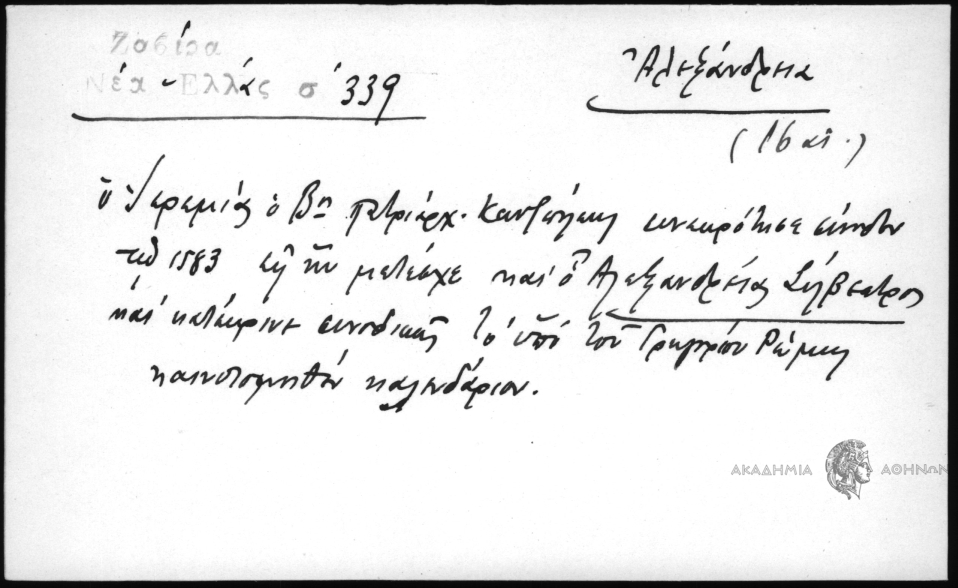 Ζαβίρα
Νέα Ἑλλάς σ' 339
Ἀλεξάνδρεια
(16 αι.)
ὁ Ἱερεμίας ὁ Βος πατριάρχ. Κων/πόλεως συνεκρότησε σύνοδον
τῷ 1583 εἰς ἣν μετέσχε καὶ ὁ Ἀλεξανδρείας Σίλβεστρος
καὶ κατέκρινε συνοδικῶς τὸ ὑπὸ τοῦ Γρηγορίου Ρώμης
καινοτομηθὲν καλενδάριον.
ΑΚΑΔΗΜΙΑ ΑΘΗΝΩΝ